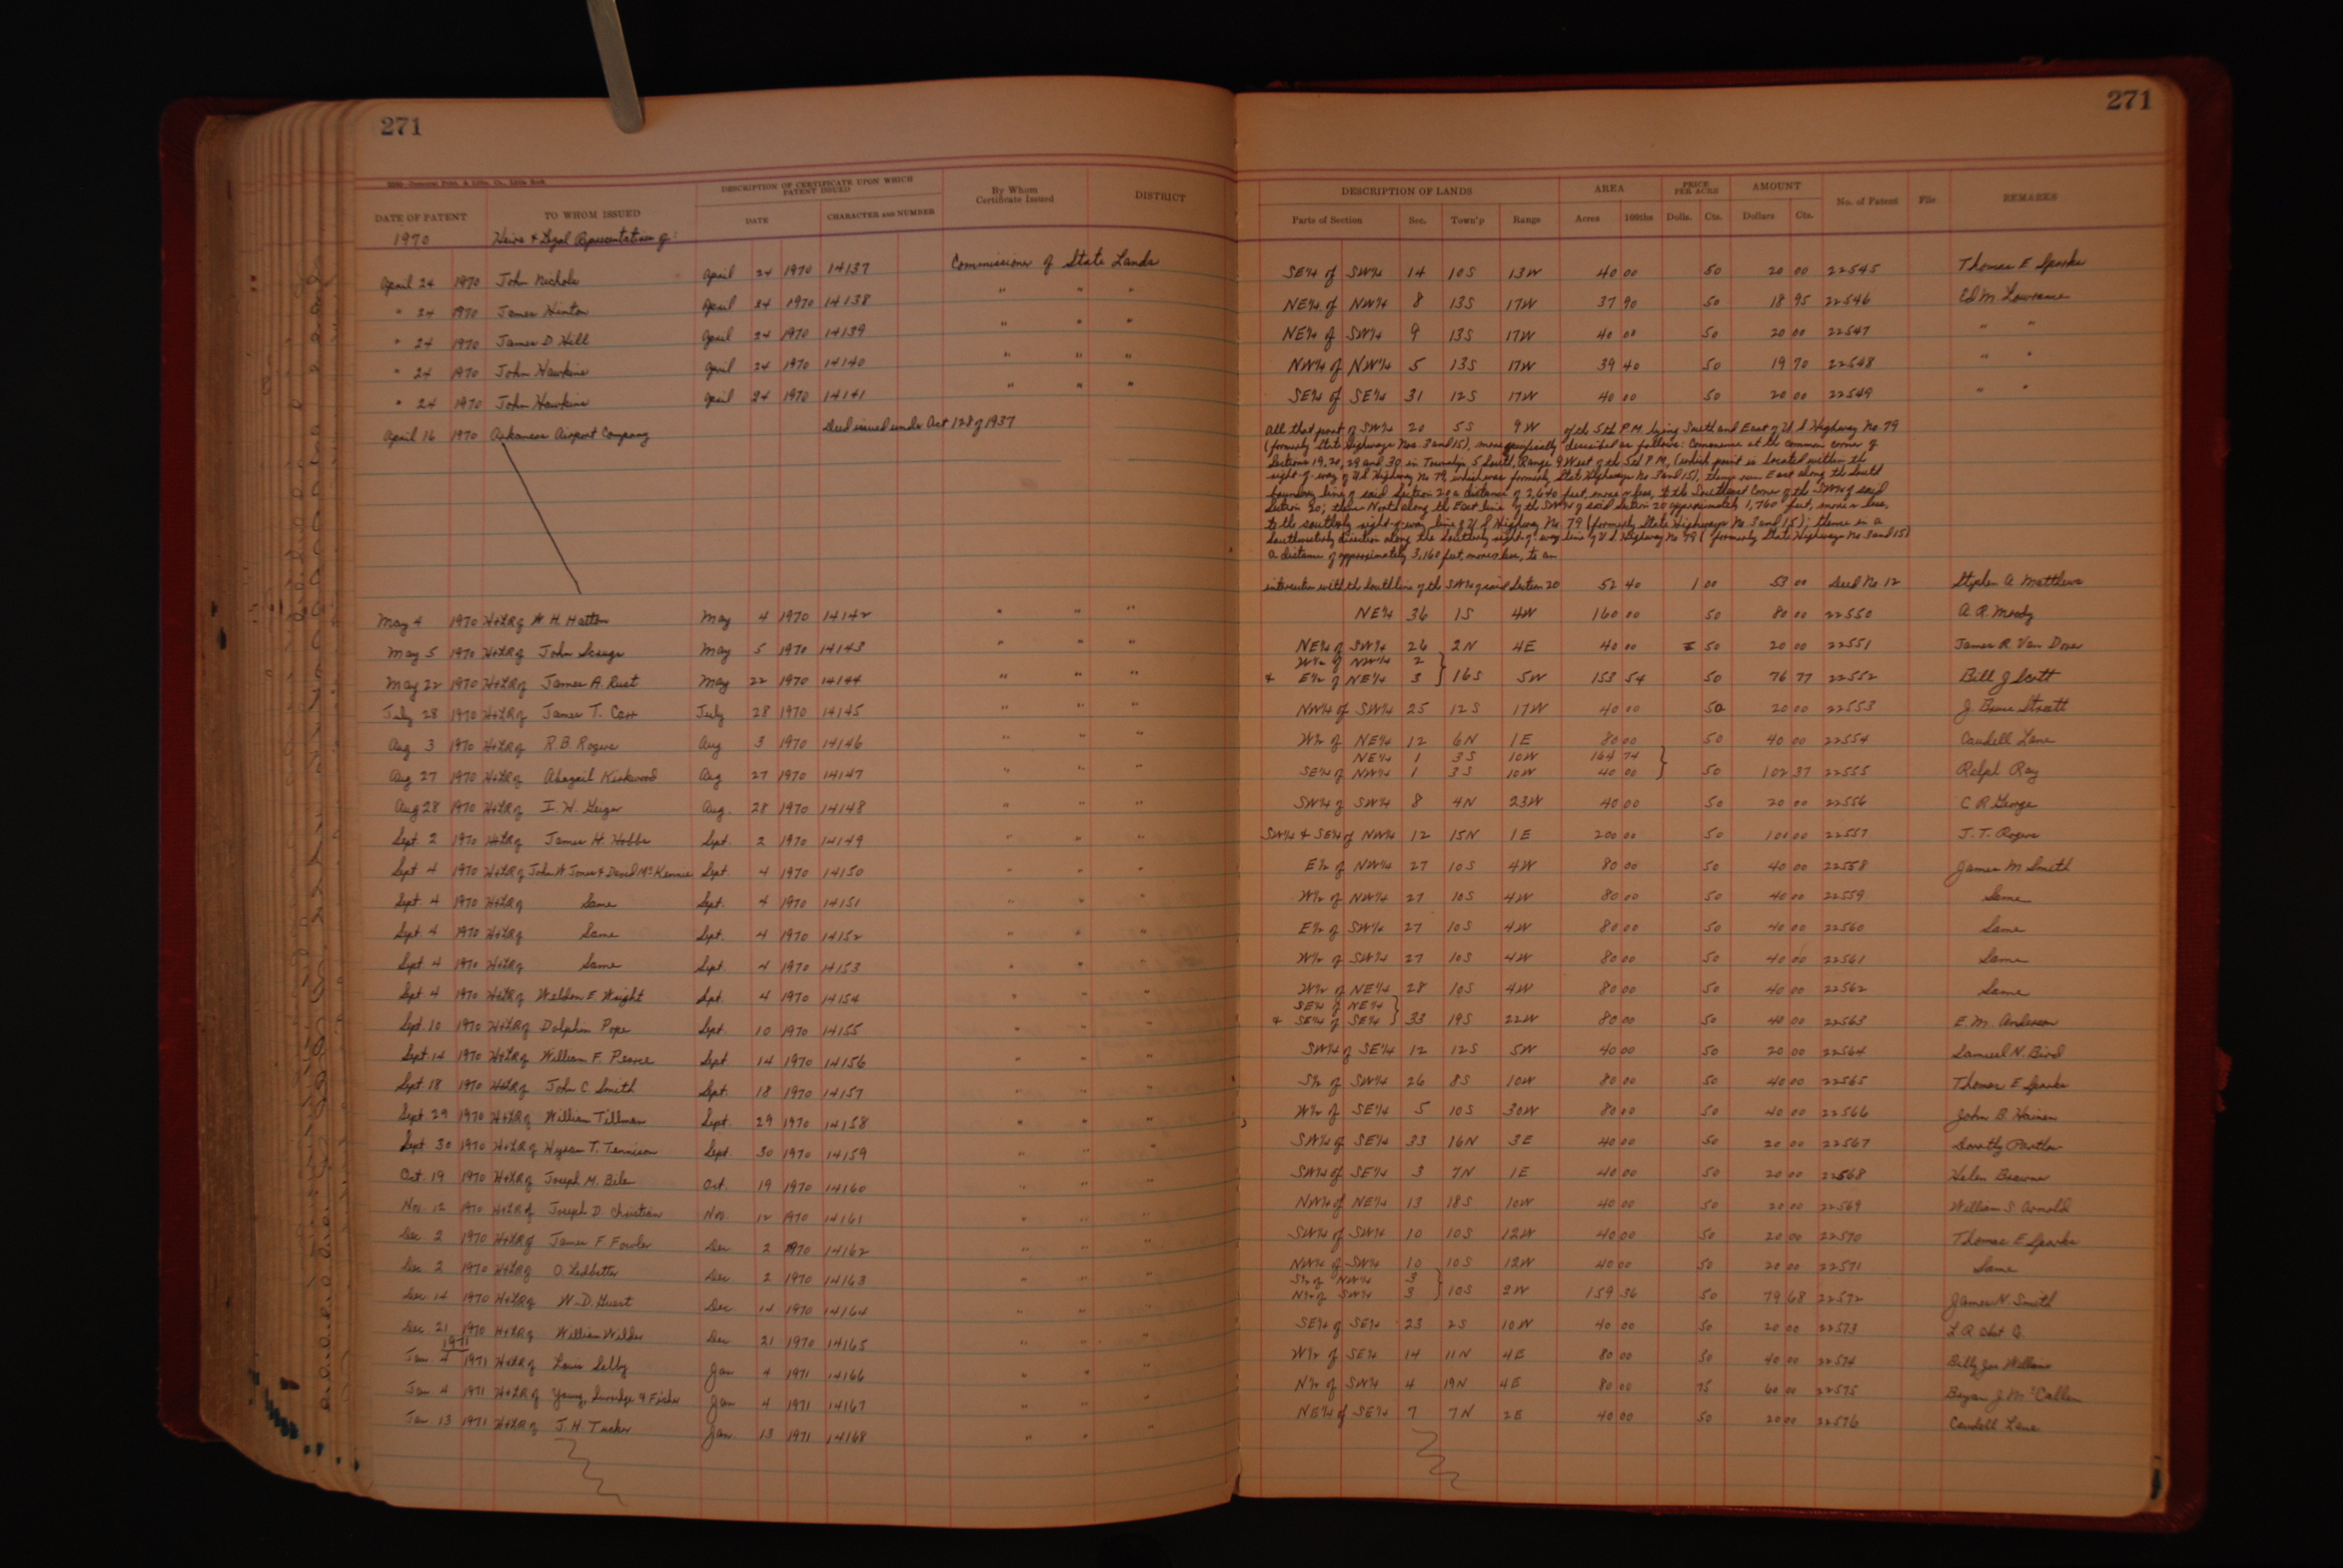 271
271
DESCRIPTION OF CERTIFICATE UPON WHICH PATENT ISSUED
By Whom Certificate Issued
DISTRICT
DATE OF PATENT TO WHOM ISSUED DATE CHARACTER AND NUMBER
DESCRIPTION OF LANDS AREA PRICE PER ACRE AMOUNT No. of Patent File REMARKS
Parts of Section Sec. Town'p Range Acres 100ths Dolls. Cts. Dollars Cts.
1970 Heirs & Legal Representatives of:
April 24 1970 John Nichols April 24 1970 14137 Commissioner of State Lands SE¼ of SW¼ 14 10S 13W 40 00 50 20 00 22545 Thomas E Sparks
" 24 1970 James Hinton April 24 1970 14138 " " " NE¼ of NW¼ 8 13S 17W 37 90 50 18 95 22546 Ed M Lowrance
" 24 1970 James D Hill April 24 1970 14139 " " " NE¼ of SW¼ 9 13S 17W 40 00 50 20 00 22547 " "
" 24 1970 John Hawkins April 24 1970 14140 " " " NW¼ of NW¼ 5 13S 17W 39 40 50 19 70 22548 " "
" 24 1970 John Hawkins April 24 1970 14141 " " " SE¼ of SE¼ 31 12S 17W 40 00 50 20 00 22549 " "
April 16 1970 Arkansas Airport Company Deed issued under Act 128 of 1937 All that part of SW¼ 20 5S 9W of the 5th P.M. lying South and East of U S Highway No 79
(formerly State Highways Nos 3 and 15), more specifically described as follows: Commence at the common corner of
Sections 19, 20, 29 and 30 in Township 5 South, Range 9 West of the 5th P.M., (which point is located within the
right-of-way of U S Highway No 79 which was formerly State Highways No 3 and 15), thence run East along the South
boundary line of said Section 20 a distance of 2,640 feet, more or less, to the Southeast Corner of the SW¼ of said
Section 20; thence North along the East line of the SW¼ of said Section 20 approximately 1,760 feet, more or less,
to the southerly right-of-way line of U S Highway No. 79 (formerly State Highways No. 3 and 15); thence in a
Southwesterly direction along the Southerly right-of-way line of U S Highway No 79 (formerly State Highways No 3 and 15)
a distance of approximately 3,160 feet, more or less, to an
intersection with the South line of the SW¼ of said Section 20 52 40 1 00 53 00 Deed No 12 Stephen A Matthews
May 4 1970 H+LR of W H. Hatten May 4 1970 14142 " " " NE¼ 36 1S 4W 160 00 50 80 00 22550 A. R. Moody
May 5 1970 H+LR of John May 5 1970 14143 " " " NE¼ of SW¼ 26 2N 4E 40 00 50 20 00 22551 James R. Van Dover
W½ of NW¼ 2
May 22 1970 H+LR of James A. Rust May 22 1970 14144 " " " & E½ of NE¼ 3 16S 5W 153 54 50 76 77 22552 Bill J Scott
July 28 1970 H+LR of James T. Carr July 28 1970 14145 " " " NW¼ of SW¼ 25 12S 17W 40 00 50 20 00 22553 J. Bruce Streett
Aug 3 1970 H+LR of R.B. Rogers Aug 3 1970 14146 " " " W½ of NE¼ 12 6N 1E 80 00 50 40 00 22554 Caudell Lane
NE¼ 1 3S 10W 164 74
Aug 27 1970 H+LR of Abagail Kirkwood Aug 27 1970 14147 " " " SE¼ of NW¼ 1 3S 10W 40 00 50 102 37 22555 Ralph Ray
Aug 28 1970 H+LR of I. H. Geiger Aug. 28 1970 14148 " " " SW¼ of SW¼ 8 4N 23W 40 00 50 20 00 22556 C R George
Sept. 2 1970 H+LR of James H. Hobbs Sept. 2 1970 14149 " " " SW¼ & SE¼ of NW¼ 12 15N 1E 200 00 50 100 00 22557 J. T. Rogers
Sept. 4 1970 H+LR of John W. Jones & David McKennie Sept. 4 1970 14150 " " " E½ of NW¼ 27 10S 4W 80 00 50 40 00 22558 James M Smith
Sept. 4 1970 H+LR of Same Sept. 4 1970 14151 " " " W½ of NW¼ 27 10S 4W 80 00 50 40 00 22559 Same
Sept. 4 1970 H+LR of Same Sept. 4 1970 14152 " " " E½ of SW¼ 27 10S 4W 80 00 50 40 00 22560 Same
Sept 4 1970 H+LR of Same Sept. 4 1970 14153 " " " W½ of SW¼ 27 10S 4W 80 00 50 40 00 22561 Same
Sept 4 1970 H+LR of Weldon E. Wright Sept. 4 1970 14154 " " " W½ of NE¼ 28 10S 4W 80 00 50 40 00 22562 Same
SE¼ of NE¼
Sept. 10 1970 H+LR of Dolphin Pope Sept 10 1970 14155 " " " & SE¼ of SE¼ 33 19S 22W 80 00 50 40 00 22563 E. M. Anderson
Sept. 14 1970 H+LR of William F. Pearce Sept 14 1970 14156 " " " SW¼ of SE¼ 12 12S 5W 40 00 50 20 00 22564 Samuel N. Bird
Sept 18 1970 H+LR of John C Smith Sept. 18 1970 14157 " " " S½ of SW¼ 26 8S 10W 80 00 50 40 00 22565 Thomas E Sparks
Sept. 29 1970 H+LR of William Tillman Sept. 29 1970 14158 " " " W½ of SE¼ 5 10S 30W 80 00 50 40 00 22566 John B. Hainen
Sept. 30 1970 H+LR of Hyram T. Tennison Sept. 30 1970 14159 " " " SW¼ of SE¼ 33 16N 3E 40 00 50 20 00 22567 Dorothy Partlow
Oct. 19 1970 H+LR of Joseph M. Bile Oct. 19 1970 14160 " " " SW¼ of SE¼ 3 7N 1E 40 00 50 20 00 22568 Helen Browne
Nov. 12 1970 H+LR of Joseph D. Christian Nov 12 1970 14161 " " " NW¼ of NE¼ 13 18S 10W 40 00 50 20 00 22569 William S Arnold
Dec. 2 1970 H+LR of James F Fowler Dec 2 1970 14162 " " " SW¼ of SW¼ 10 10S 12W 40 00 50 20 00 22570 Thomas E Sparks
Dec 2 1970 H+LR of O. Ledbetter Dec 2 1970 14163 " " " NW¼ of SW¼ 10 10S 12W 40 00 50 20 00 22571 Same
S½ of NW¼ 3
Dec 14 1970 H+LR of W. D. Guest Dec 14 1970 14164 " " " N½ of SW¼ 3 10S 2W 159 36 50 79 68 22572 James N. Smith
Dec 21 1970 H+LR of William Wilder Dec 21 1970 14165 " " " SE¼ of SE¼ 23 2S 10W 40 00 50 20 00 22573
1971
Jan 4 1971 H+LR of Louis Selby Jan 4 1971 14166 " " " W½ of SE¼ 14 11N 4E 80 00 50 40 00 22574 Billy Joe Williams
Jan 4 1971 H+LR of Young, & Fisher Jan 4 1971 14167 " " " N½ of SW¼ 4 19N 4E 80 00 75 60 00 22575 Bryan J McCallen
Jan 13 1971 H+LR of J. H. Tucker Jan. 13 1971 14168 " " " NE¼ of SE¼ 7 7N 2E 40 00 50 20 00 22576 Caudell Lane